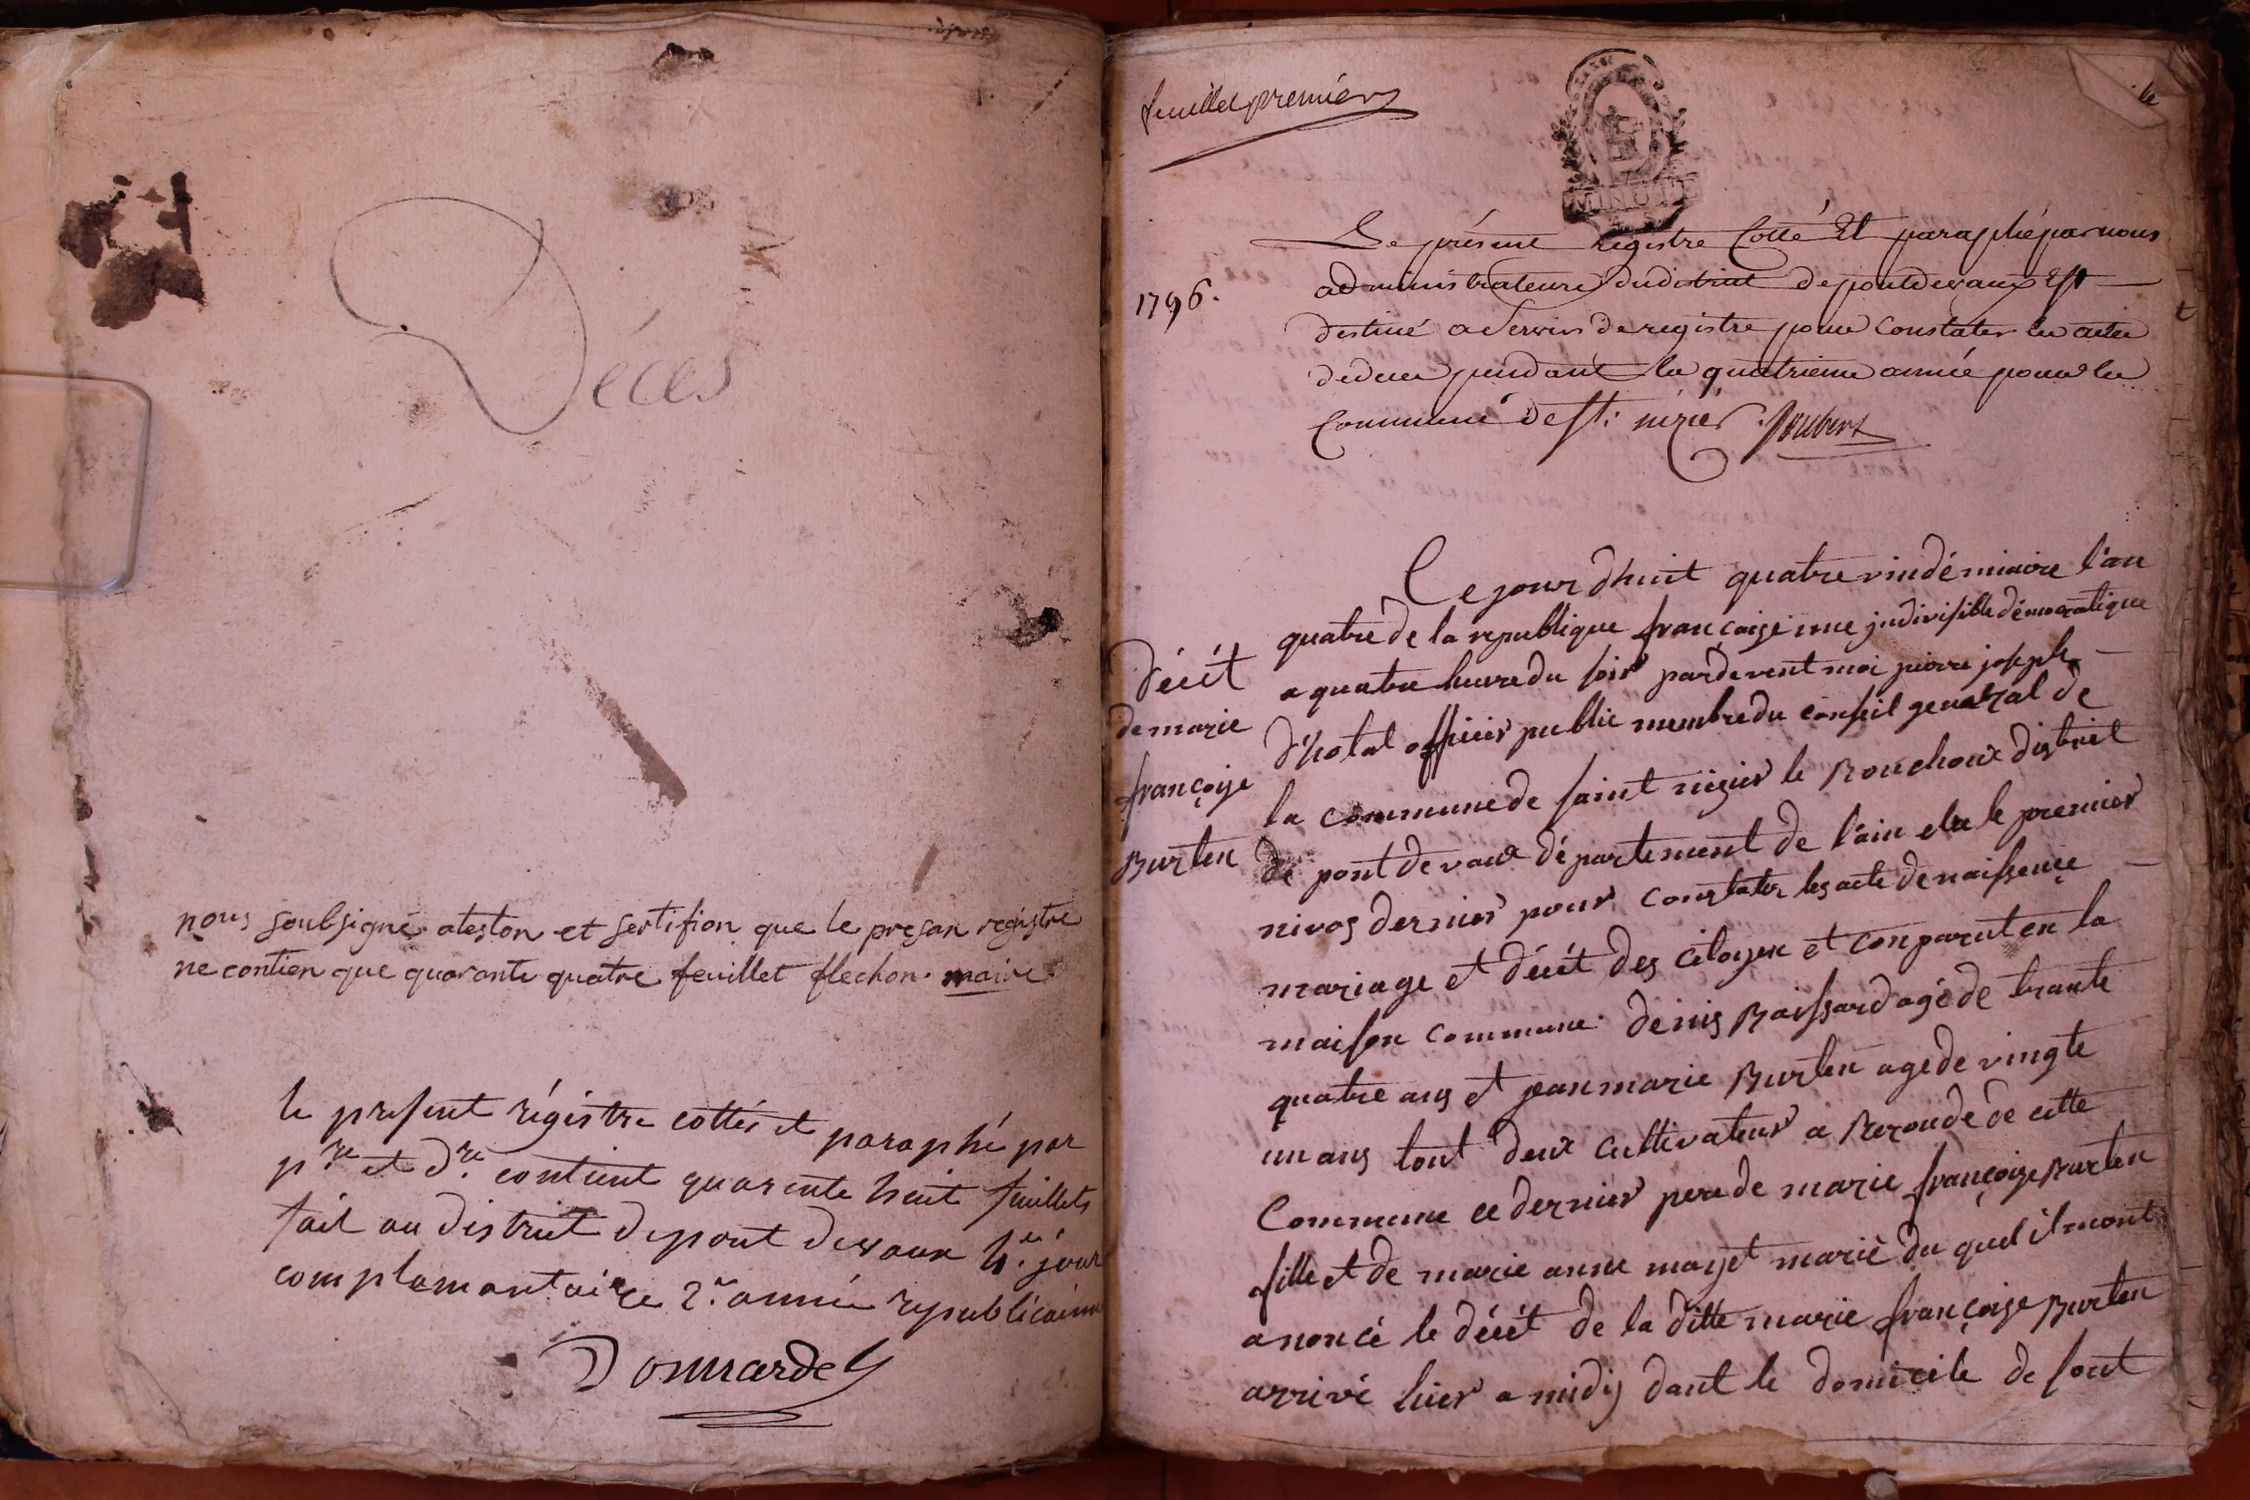 Décès
nous soubsigné ateston et sertifion que le presan registre
ne contien que quarante quatre feuillet flechon. maire
le present régistre cottés et paraphé par
p.re et d.re contient quarente huit feuillets
fait au district de pont devaux 4.e jour
complemantaire 2.e année republicaine
feuillet premier
MINUTE
1796.
Le présent registre Cotté Et paraphé par nous
administrateurs du district de pontdevaux Est
destiné a Servir de registre pour Constater les actes
de deces pendant la quatrieme année pour la
Commune de st. nizier Joubert
décét
de marie
françoise
Burten
Ce jour dhuit quatre vindémiaire l'an
quatre de la republique françoise une jndivisible démocratique
a quatre heure du soir pardevent moi pierre joseph
d'hotal officier public membre du conseil general de
la commune de saint nizier le Bouchoux district
de pont de vaux département de l'ain elu le premier
nivos dernier pour constater les acte de naissence
mariage et décét des citoyen et conparut en la
maison commune denis Boissard agé de trante
quatre ans et jean marie Burten age de vingte
un ans tout deux cultivateur a Beronde de cette
Commune ce dernier pere de marie françoise Burten
fille et de marie anne mayet marié du quel il mont
anoncé le décét de la ditte marie françoise Burten
arrivé hier a midy dant le domicile de sont